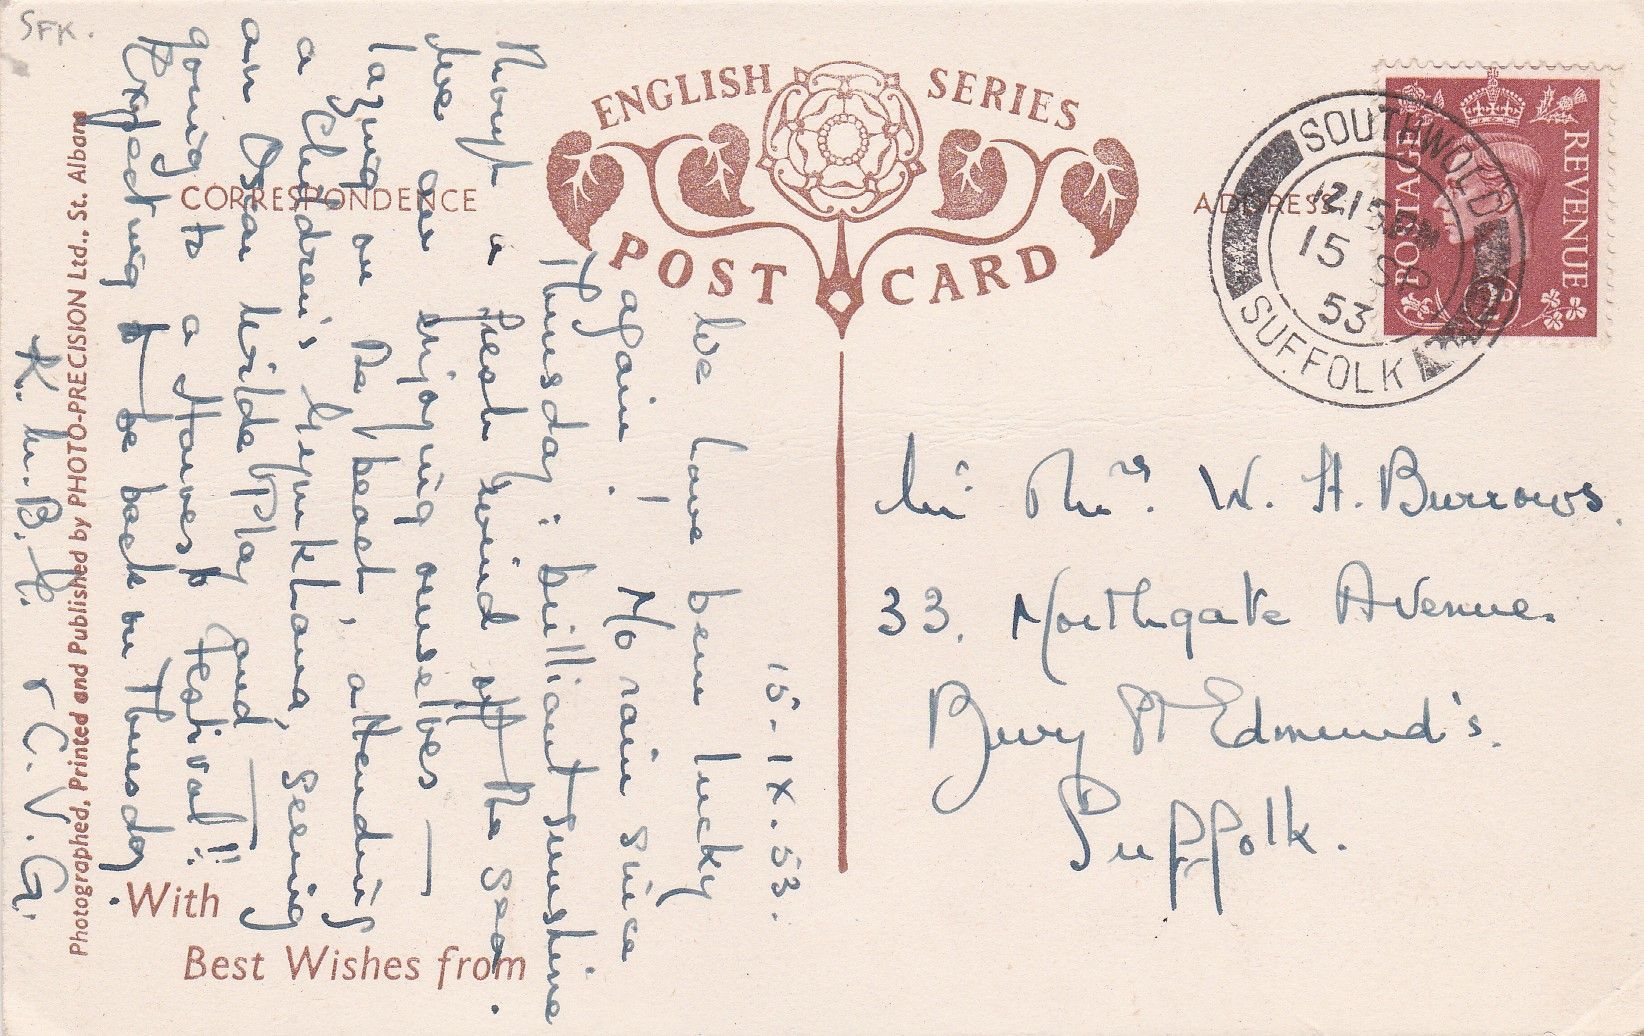 SFK.
ENGLISH SERIES
POST CARD
CORRESPONDENCE
ADDRESS
SOUTHWOLD
12 15 PM
15 SP
53
SUFFOLK
POSTAGE
REVENUE
15-IX-53.
We have been lucky
again! No rain since
Thursday: brilliant sunshine
though a fresh wind off the sea.
We are enjoying ourselves —
lazing on the beach, attending
a Children's Gymkhana, seeing
an Oscar Wilde Play and
going to a Harvest Festival!!
Expecting to be back on Thursday.
K. M. B. H. & C. V. G.
Mr. Mrs. W. H. Burrows.
33, Northgate Avenue.
Bury St Edmund's.
Suffolk.
With
Best Wishes from
Photographed, Printed and Published by PHOTO-PRECISION Ltd., St. Albans